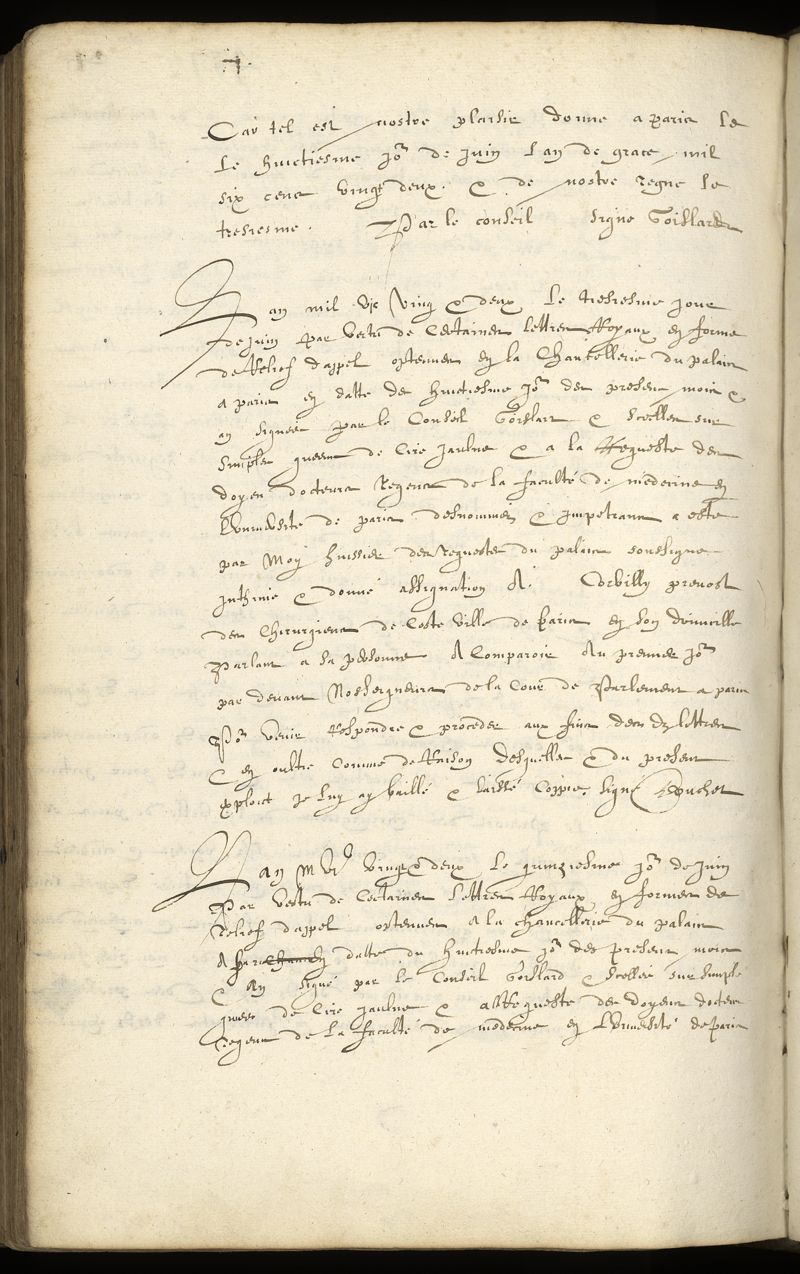 Car tel est nostre plaisir donne a paris le
le huictiesme jor de juin l an de grace mil
six cens vingt deux. & de nostre regne le
tresiesme. Par le conseil signe Goislard
L an mil vjc vingt & deux le tresiesme jour
de juin par vertu de Certaines lettres Royaux en forme
de Relief dappel optenues en la Chancellerie du palais
a paris en datte des huictiesme jor des presens mois &
an signees par le Conseil Goislart & scellees sur
simple queue de Cire jaulne & a la Requeste des
doyen docteurs Regens de la faculté de medecine en
luniversite de paris desnommez & impetrans a esté
par Moy huissier des Requestes du palais soussigne
inthimé & donné assignation A. Corbilly prevost
des Chirurgiens de Ceste ville de Paris en son domicille
Parlant a sa personne A Comparoir Au premier jor
par devant Nosseigneurs de la Cour de Parlement a paris
Por venir Respondre & proceder aux fins desd lettres
& en oultre Comme de Raison desquelles & du present
exploict je luy ay baillé & laissé Coppie. signé Bouchet
L an M VIc vingt & deux le quinziesme jor de juin
Par vertu de Certaines Lettres Royaux en formes de
Relief dappel optenues A la chancellerie du palais
A Paris en datte du huictiesme jor des presens mois
& An signé par le Conseil Goislard & scellee sur simple
queue de Cire jaulne & a la Requeste des doyens docteurs
Regens de la faculté de medecine en luniversité de paris